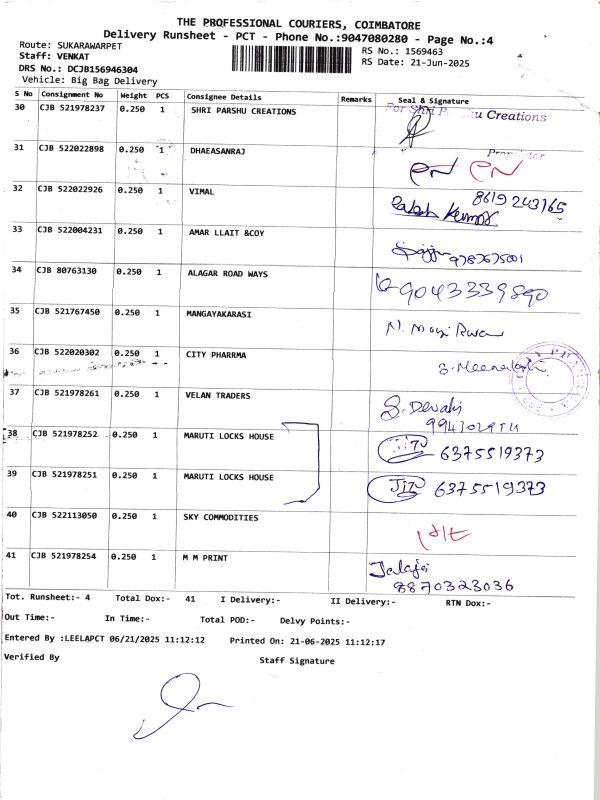 THE PROFESSIONAL COURIERS, COIMBATORE
Delivery Runsheet - PCT - Phone No.:9047080280 - Page No.:4
Route: SUKARAWARPET
RS No.: 1569463
Staff: VENKAT
RS Date: 21-Jun-2025
DRS No.: DCJB156946304
Vehicle: Big Bag Delivery
S No Consignment No Weight PCS Consignee Details Remarks Seal & Signature
30 CJB 521978237 0.250 1 SHRI PARSHU CREATIONS For Shri Creations
31 CJB 522022898 0.250 1 DHAEASANRAJ
Proprietor
32 CJB 522022926 0.250 1 VIMAL 8619243165
33 CJB 522004231 0.250 1 AMAR LLAIT &COY 9787675001
34 CJB 80763130 0.250 1 ALAGAR ROAD WAYS 9043339890
35 CJB 521767450 0.250 1 MANGAYAKARASI
36 CJB 522020302 0.250 1 CITY PHARRMA
37 CJB 521978261 0.250 1 VELAN TRADERS S. Devaki
38 CJB 521978252 0.250 1 MARUTI LOCKS HOUSE 6375519373
39 CJB 521978251 0.250 1 MARUTI LOCKS HOUSE JiTu 6375519373
40 CJB 522113050 0.250 1 SKY COMMODITIES
41 CJB 521978254 0.250 1 M M PRINT Jalaja
8870323036
Tot. Runsheet:- 4 Total Dox:- 41 I Delivery:- II Delivery:- RTN Dox:-
Out Time:- In Time:- Total POD:- Delvy Points:-
Entered By :LEELAPCT 06/21/2025 11:12:12 Printed On: 21-06-2025 11:12:17
Verified By Staff Signature